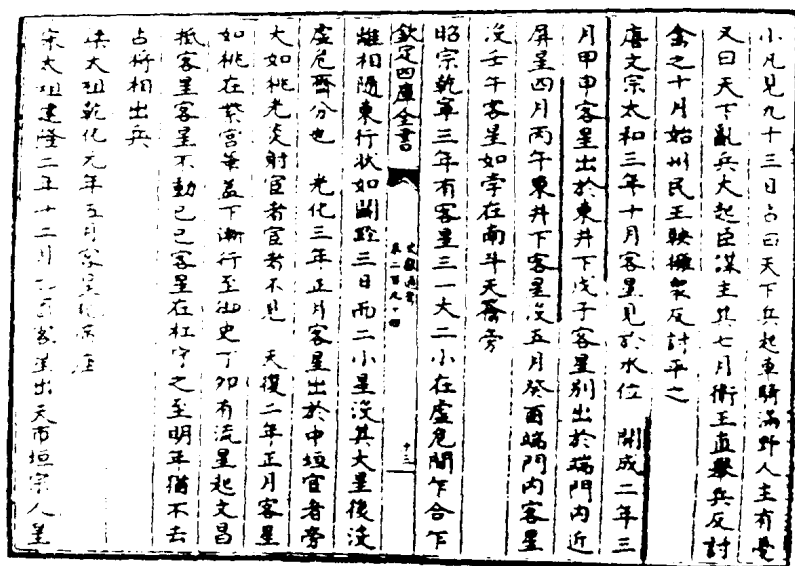 小凡見九十三日占曰天下兵起車騎滿野人主有憂
又曰天下亂兵大起臣謀主其七月衛王直舉兵反討
禽之十月始州民王鞅擁衆反討平之
唐文宗太和三年十月客星見於水位 開成二年三
月甲申客星出於東井下戊子客星別出於端門內近
屏星四月丙午東井下客星沒五月癸酉端門內客星
沒壬午客星如孛在南斗天籥旁
昭宗乾寧三年有客星三一大二小在虛危間乍合乍
欽定四庫全書
文獻通考
卷二百九十四
十三
離相隨東行狀如鬬經三日而二小星沒其大星後沒
虛危齊分也 光化三年正月客星出於中垣宦者旁
大如桃光炎射宦者宦者不見 天復二年正月客星
如桃在紫宮華蓋下漸行至御史丁卯有流星起文昌
抵客星客星不動己巳客星在杠守之至明年猶不去
占將相出兵
梁太祖乾化元年五月客星犯帝座
宋太祖建隆二年十二月己酉客星出天市垣宗人星